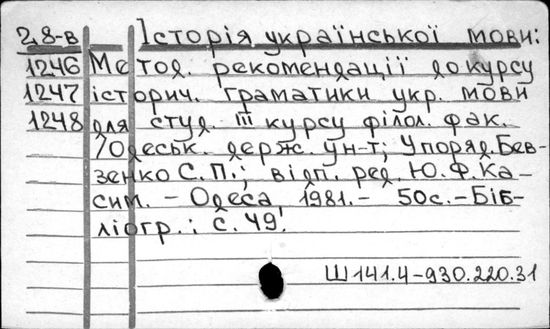 28-в Історія української мови:
1246 Метод. рекомендації до курсу
1247 історич. граматики укр. мови
1248 для студ. III курсу філол. фак.
/Одеськ. держ. ун-т; Упоряд. Бев-
зенко С.П.; відп. ред. Ю.Ф.Ка-
сим. – Одеса, 1981. – 50с. – Біб-
ліогр.: с. 49.
Ш141.4-930.220.31